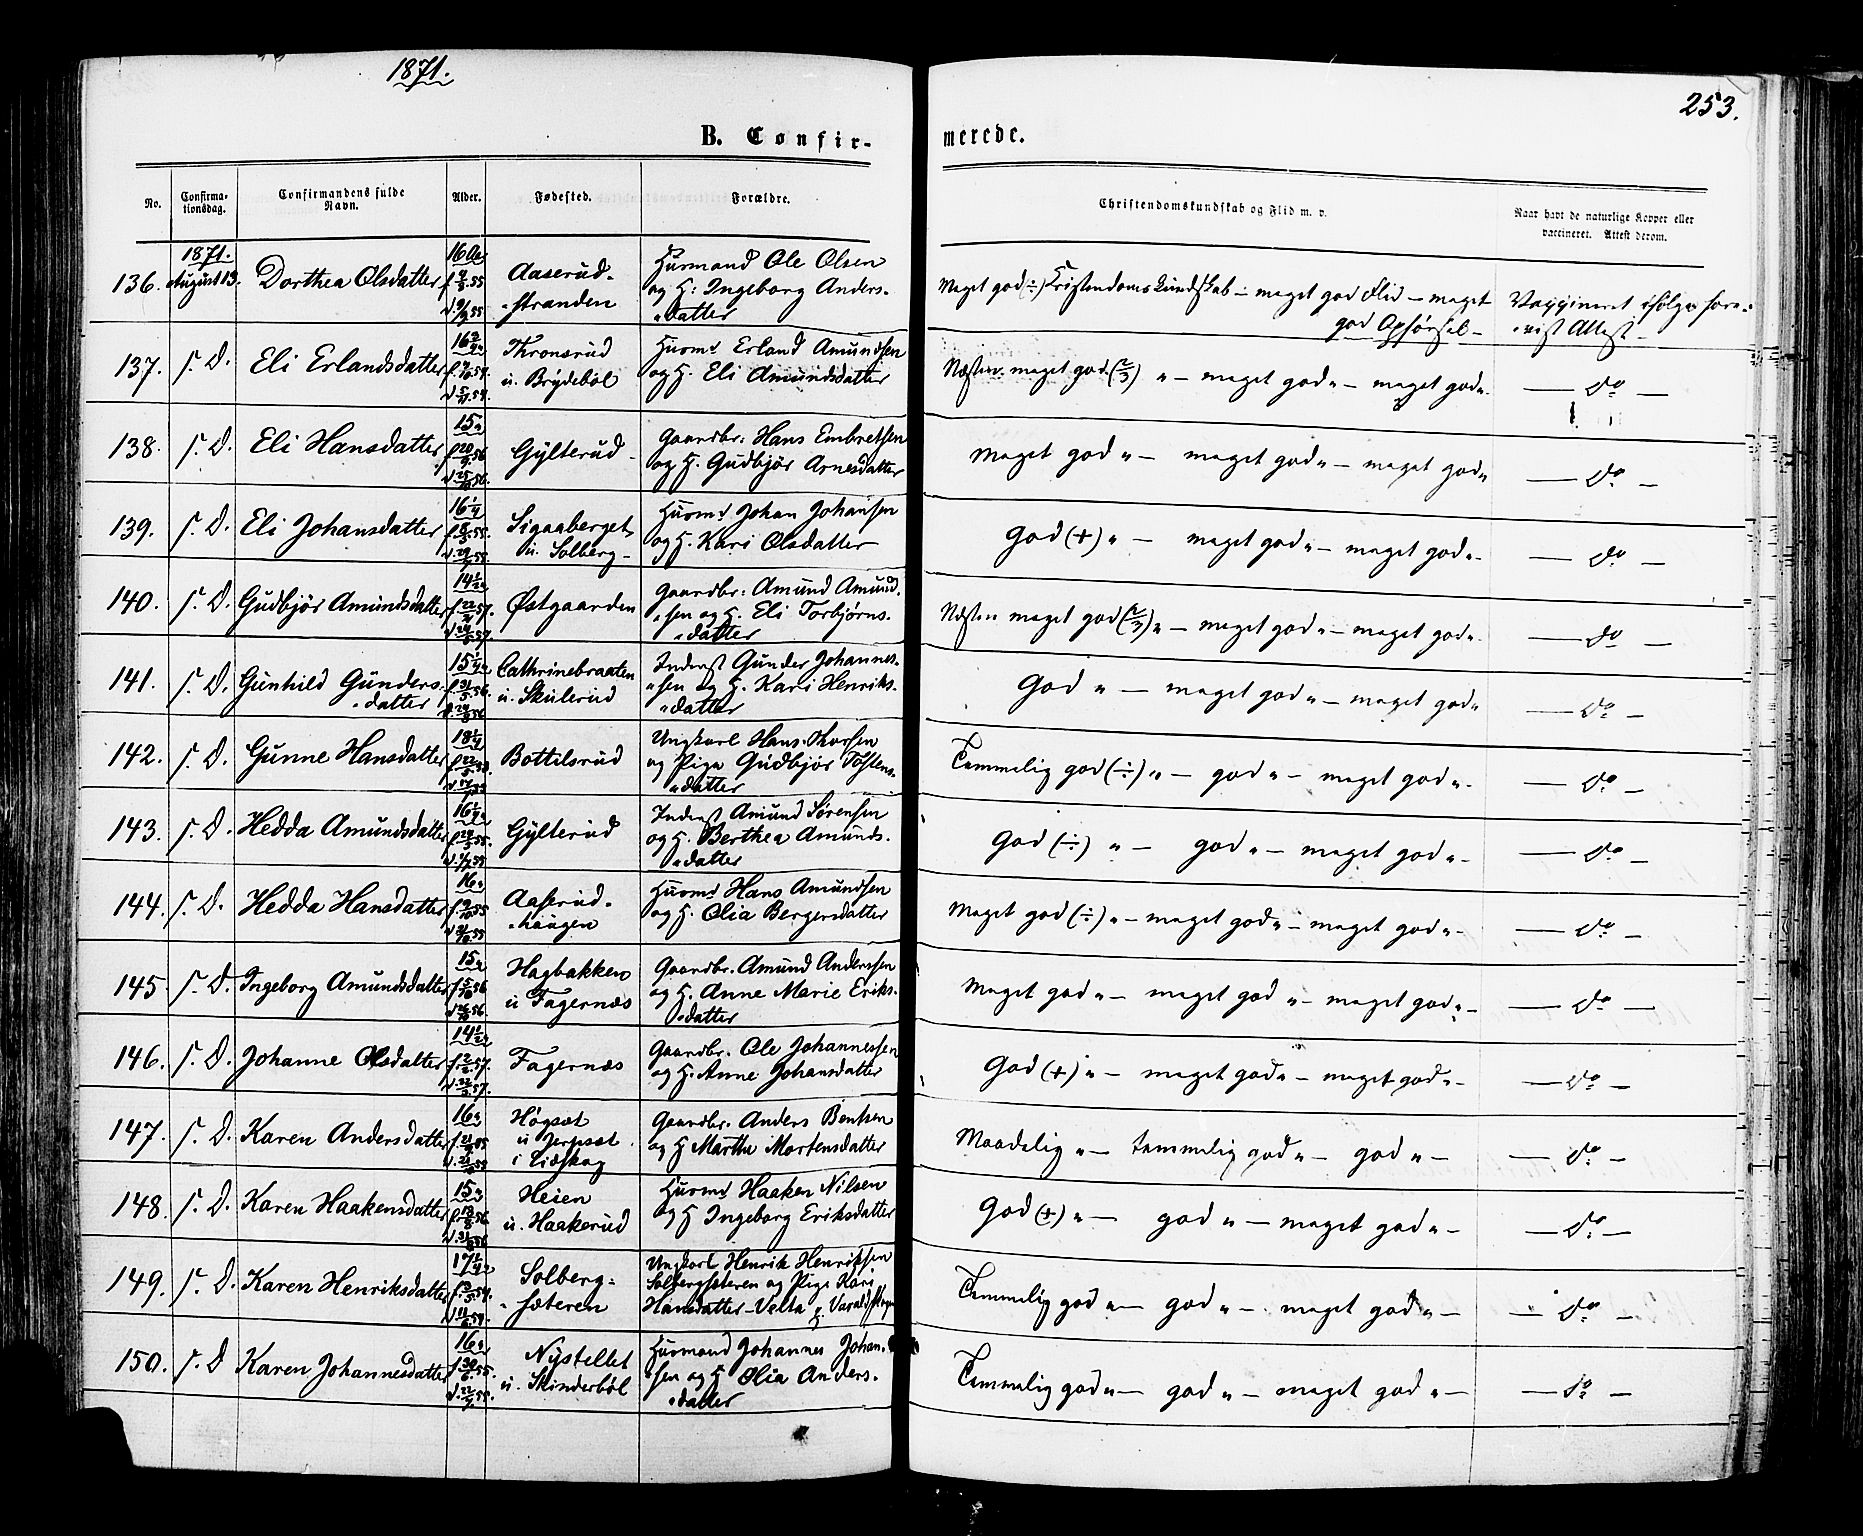 1871.
253.
B. Confirmerede.
No.
Confirmationsdag.
Confirmandens fulde Navn.
Alder.
Fødested.
Forældre.
Christendomskundskab og Flid m. v.
Naar havt de naturlige Kopper eller vaccineret. Attest derom.
1871.
136. August 13. Dorthea Olsdatter 16 Aar
Aaserud-
-stranden
Husmand Ole Olsen
og H: Ingeborg Anders-
-datter
Meget god (÷) Kristendomskundskab - meget god Flid - meget
god Opførsel -
Vaccineret ifølge fore-
-vist Attest -
137. s. D. Eli Erlandsdatter
Thronsrud
u. Brydeböl
Husmd Erland Amundsen
og H. Eli Amundsdatter
Næsten meget god (2/3) " - meget god " - meget god " -
— do —
138. s. D. Eli Hansdatter 15
Gylterud -
Gaardbr: Hans Embretsen
og H. Gudbjör Arnesdatter
Meget god " - meget god " - meget god "
— do —
139. s. D. Eli Johansdatter 16 1/4
Sigaaberget
u. Solberg -
Husmd Johan Johansen
og H. Kari Olsdatter -
God (+) " - meget god " - meget god " -
— do —
140. s. D. Gudbjör Amundsdatter 14 1/2
Østgaarden
Gaardbr: Amund Amund-
-sen og H. Eli Torbjørns-
-datter
Næsten meget god (2/3) " - meget god " - meget god " -
— do —
141. s. D. Gunhild Gunders-
-datter 15 1/4
Cathrinebraaten
u. Skulerud
Inderst Gunder Johannes-
-sen og H. Kari Henriks-
-datter
God " - meget god " - meget god "
— do —
142. s. D. Gunne Hansdatter 18 1/4
Bottilsrud
Ungkarl Hans
og Pige Gudbjör Tostens-
-datter
Temmelig god (÷) " - god " - meget god " -
— do —
143. s. D. Hedda Amundsdatter
Gylterud
Inderst Amund Sørensen
og H. Berthea Amunds-
-datter
God (÷) " - god " - meget god " -
— do —
144. s. D. Hedda Hansdatter 16
Aaserud-
-haugen
Husmd Hans Amundsen
og H. Olia Bergersdatter
Meget god (÷) " - meget god " - meget god " -
— do —
145 s. D. Ingeborg Amundsdatter 15
Hagbakken
u Fagernæs
Gaardbr. Amund Anderssen
og H. Anne Marie Eriks-
-datter
Meget god " - meget god " - meget god " -
— do —
146. s. D. Johanne Olsdatter 14 1/2
Fagernæs
Gaardbr. Ole Johannessen
og H. Anne Johansdatter
God (+) " - meget god " - meget god " -
— do —
147. s. D. Karen Andersdatter 16
Högsæt
u Jerpsæt
i Eidskog
Gaardbr. Anders Bentsen
og H Marthe Mortensdatter
Maadelig " - temmelig god " - god " -
— do —
148. s. D. Karen Haakensdatter 15
Heien
u. Haakerud
Husmd Haaken Nilsen
og H Ingeborg Eriksdatter
God (+) " - god " - meget god " -
— do —
149. s. D. Karen Henriksdatter
Solberg-
-sæteren
Ungkarl Henrik Henriksen
Solbergsæteren og Pige Kari
Hansdatter - Velta
Temmelig god " - god " - meget god " -
— do —
150. s. D Karen Johannesdatter 16
Nystellet
u. Skinderböl
Husmand Johannes Johan-
-sen og H Olia Anders-
-datter
Temmelig god " - god " - meget god " -
— do —